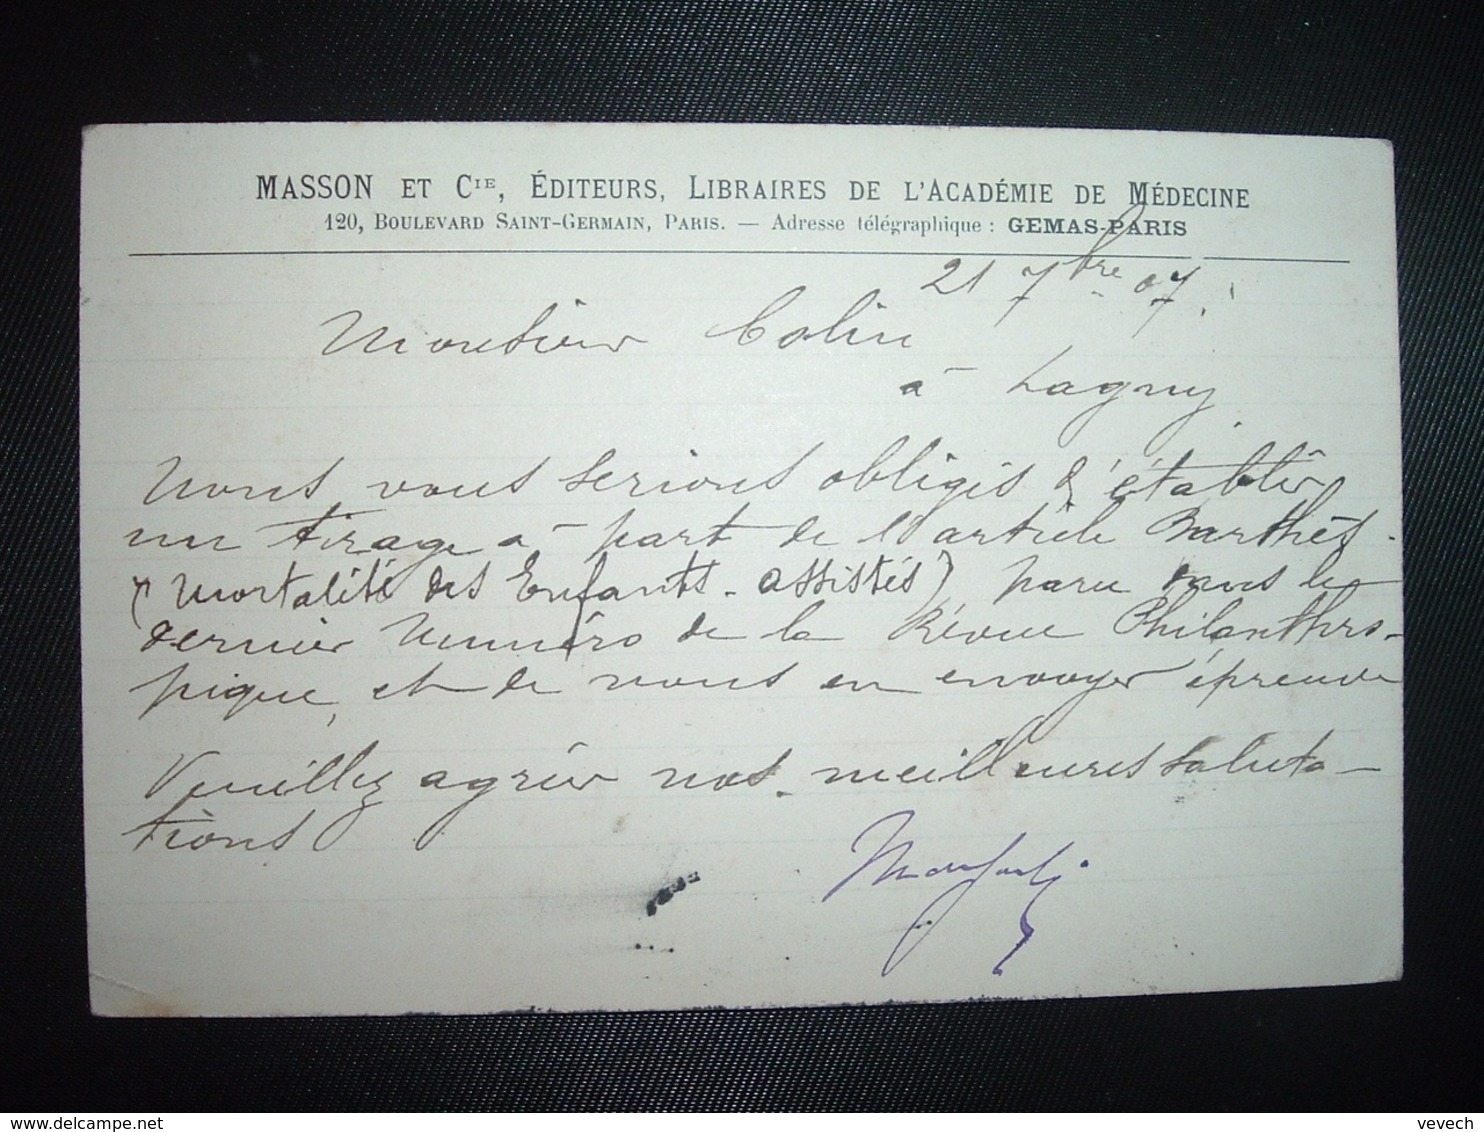 MASSON ET CIE, ÉDITEURS, LIBRAIRES DE L'ACADÉMIE DE MÉDECINE
120, BOULEVARD SAINT-GERMAIN, PARIS. — Adresse télégraphique : GEMAS-PARIS
21 7bre 07.
Monsieur Colin
à Lagny
Nous vous serions obligés d'établir
un tirage à part de l'article Barthès
(Mortalité des Enfants-assistés) paru dans le
dernier Numéro de la Revue Philanthro-
pique, et de nous en envoyer épreuve
Veuillez agréer nos meilleures saluta-
tions
delcampe.net
vevech